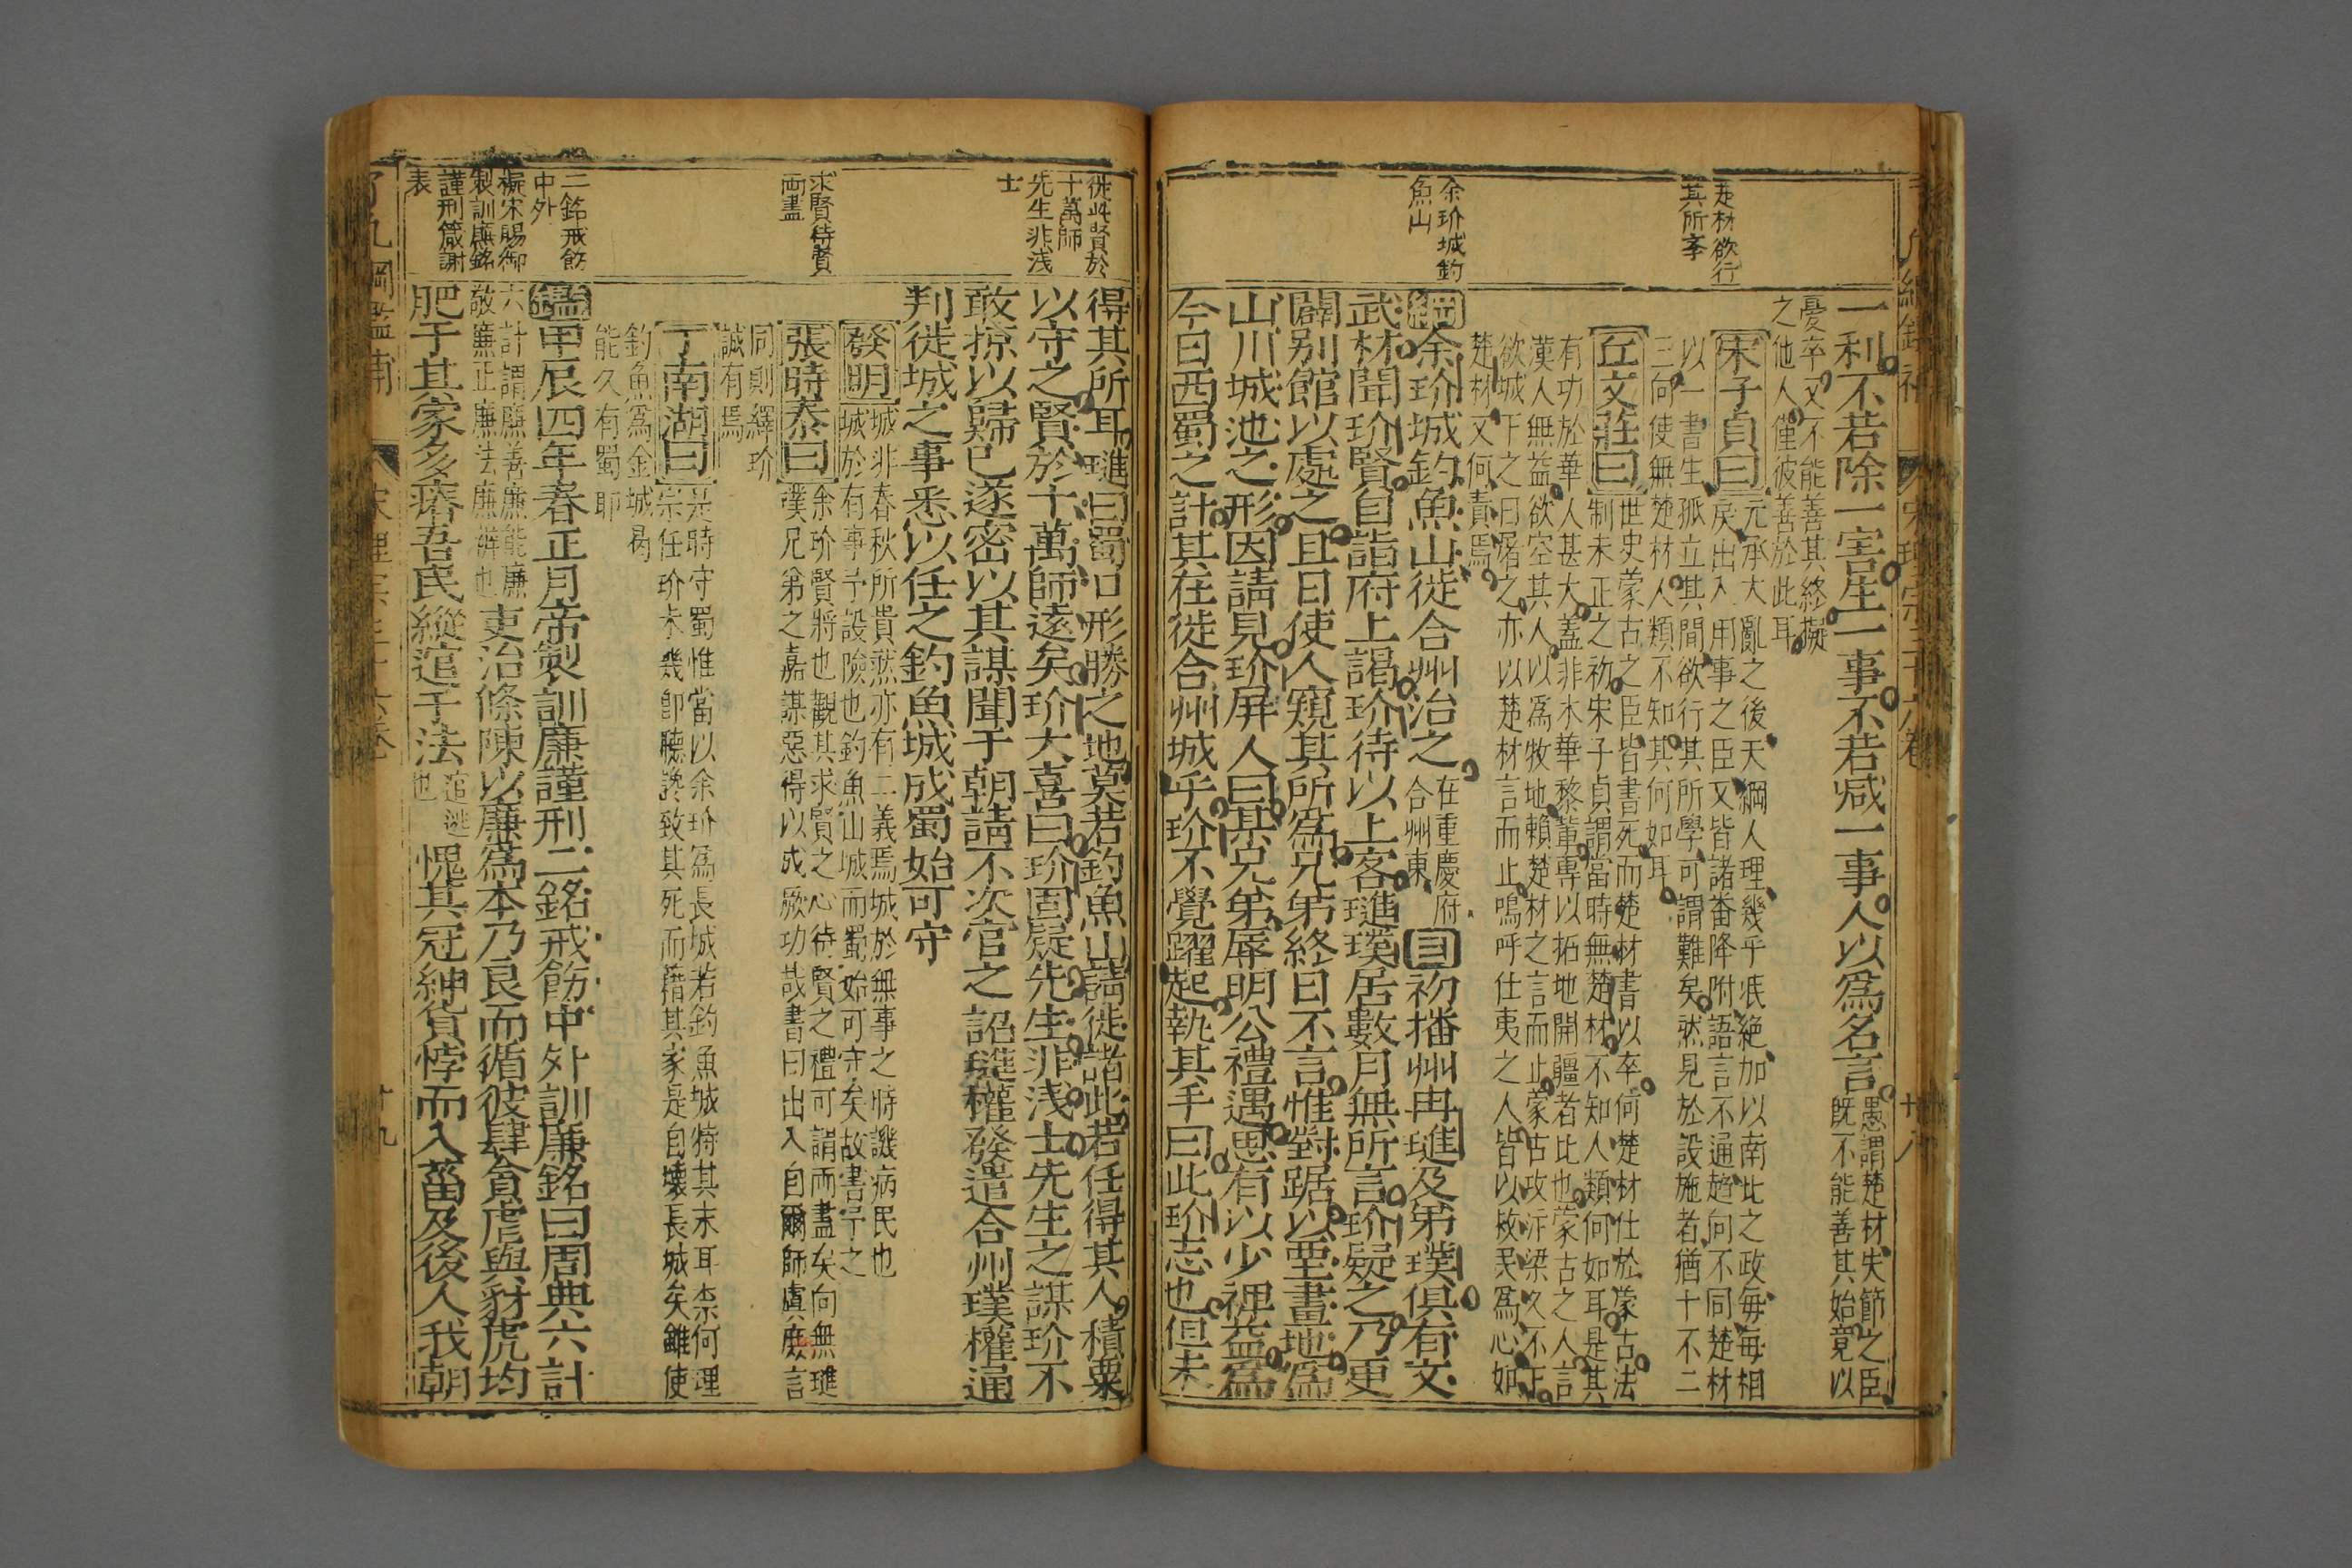 楚材欲行
其所學
余玠城釣
魚山
一利不若除一害生一事不若减一事人以爲名言愚謂楚材失節之臣
既不能善其始竟以
憂卒又不能善其終擬
之他人僅彼善於此耳
宋子貞曰元承大亂之後天綱人理幾乎泯絶加以南北之政每每相
戾出入用事之臣又皆諸番降附語言不通趨向不同楚材
以一書生孤立其間欲行其所學可謂難矣然見於設施者猶十不二
三向使無楚材人類不知其何如耳
丘文莊曰世史蒙古之臣皆書死而楚材書以卒何楚材仕於蒙古法
制未正之初宋子貞謂當時無楚材不知人類何如耳是其
有功於華人甚大蓋非木華黎輩專以拓地開疆者比也蒙古之人言
漢人無益欲空其人以爲牧地賴楚材之言而止蒙古攻汴梁久不下
欲城下之日屠之亦以楚材言而止嗚呼仕夷之人皆以救民爲心如
楚材又何責焉
綱余玠城釣魚山徙合州治之在重慶府
合州東
目初播州冉璡及弟璞俱有文
武材聞玠賢自詣府上謁玠待以上客璡璞居數月無所言玠疑之乃更
闢别館以處之且日使人窺其所爲兄弟終日不言惟對踞以堊畫地爲
山川城池之形因請見玠屏人曰某兄弟辱明公禮遇思有以少裨益爲
今日西蜀之計其在徙合州城乎玠不覺躍起執其手曰此玠志也但未
徙此賢於
十萬師
先生非淺
士
求賢待賢
兩盡
二銘戒飭
中外
擬宋賜御
製訓廉銘
謹刑箴謝
表
得其所耳璡曰蜀口形勝之地莫若釣魚山請徙諸此若任得其人積粟
以守之賢於十萬師遠矣玠大喜曰玠固疑先生非淺士先生之謀玠不
敢掠以歸己遂密以其謀聞于朝請不次官之詔璡權發遣合州璞權通
判徙城之事悉以任之釣魚城成蜀始可守
發明城非春秋所貴然亦有二義焉城於無事之時譏病民也
城於有事予設險也釣魚山城而蜀始可守矣故書予之
張時泰曰余玠賢將也觀其求賢之心待賢之禮可謂兩盡矣向無璡
璞兄弟之嘉謀惡得以成厥功哉書曰出入自爾師虞庶言
同則繹玠
誠有焉
丁南湖曰是時守蜀惟當以余玠爲長城若釣魚城特其末耳柰何理
宗任玠未幾即聽讒致其死而籍其家是自壞長城矣雖使
釣魚爲金城曷
能久有蜀耶
鑑甲辰四年春正月帝製訓廉謹刑二銘戒飭中外訓廉銘曰周典六計
六計謂廉善廉能廉
敬廉正廉法廉辨也
吏治條陳以廉爲本乃良而循彼肆貪虐與豺虎均
肥于其家多瘠吾民縱逭于法逭逃
也
愧其冠紳貨悖而入菑及後人我朝